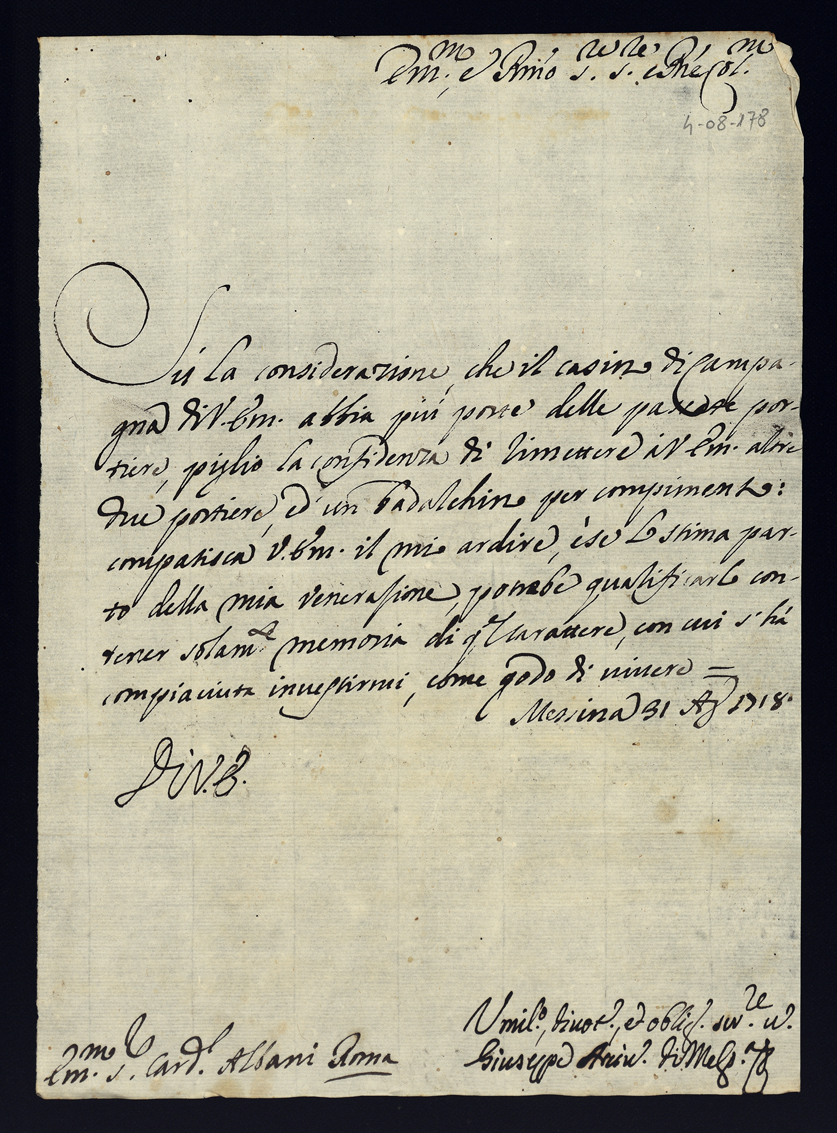 Em.mo, e Rmo S.re S.re e Pne Col.mo
4-08-178
Sù la considerazione, che il casino di Campa-
gna di V. Em. abbia più porte delle passate por-
tiere, piglio la confidenza di rimettere à V. Em. altre
due portiere, ed un Badalchino per compimento:
compatisca V. Em. il mio ardire, è se lo stima par-
to della mia venerazione, potrebbe qualificarlo con-
tener solam.te memoria di q.l carattere, con cui s'hà
compiaciuta investirmi, come godo di vivere =
Messina 31 Ag.o 1718.
Di V. E.
Umil.o, divot.o, ed oblig.o ser.re u.o
Giuseppe Arciv.o di Mess.a
Em.mo S. Card.l Albani Roma